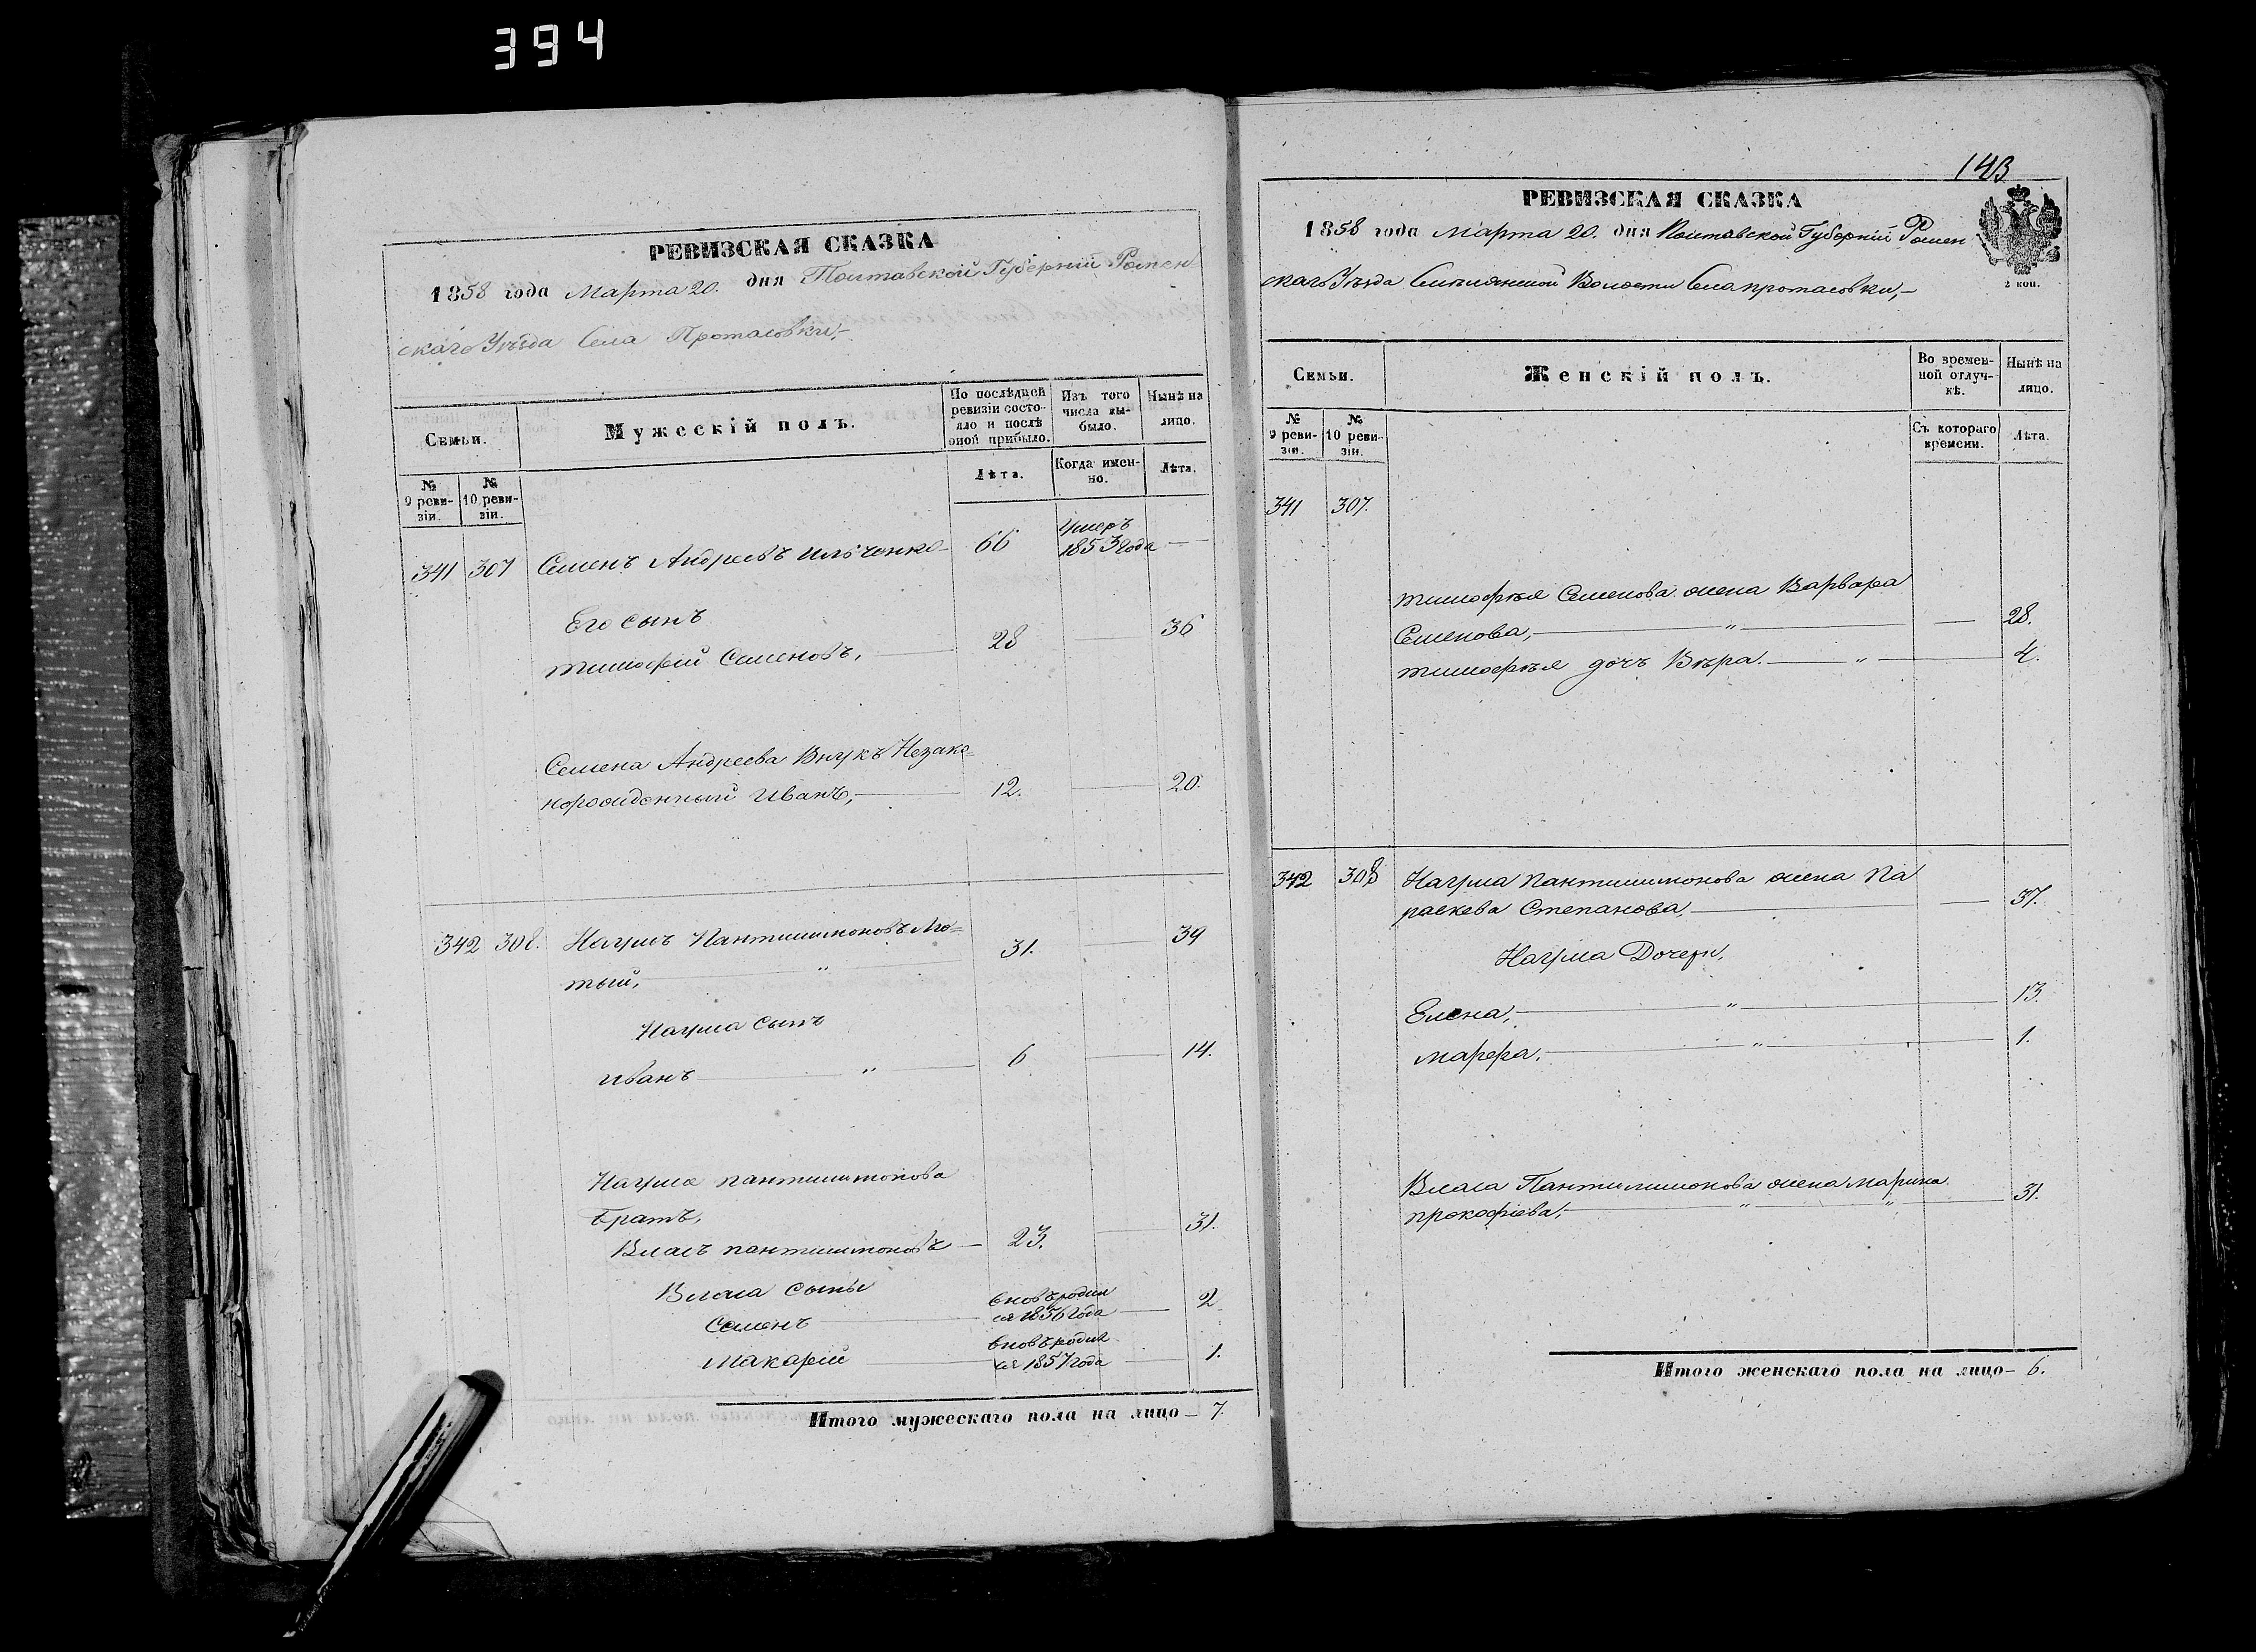 394
РЕВИЗСКАЯ СКАЗКА
1858 года Марта 20. дня Полтавской Губерніи Ромен
скаго Уѣзда Села Протасовки,
Семьи.
Мужескій полъ.
По послѣдней ревизіи состояло и послѣ оной прибыло.
Изъ того числа выбыло.
Нынѣ на лицо.
№ 9 ревизіи.
№ 10 ревизіи.
Лѣта.
Когда именно.
Лѣта.
341 307 Семенъ Андреевъ Ильченко 66 умеръ 1853 года —
Его сынъ
Тимофей Семеновъ, 28 — 36
Семена Андреева Внукъ Незако=
норожденный Иванъ, 12. — 20.
342 308. Наумъ Пантилимоновъ Лю=
тый, " 31. — 39
Наума сынъ
Иванъ " 6 — 14.
Наума Пантилимонова
Братъ,
Власъ Пантилимоновъ — 23. — 31.
Власа сыны
Семенъ вновь родил
ся 1856 года — 2
Макарій вновь родил
ся 1857 года — 1.
Итого мужескаго пола на лицо — 7.
143
РЕВИЗСКАЯ СКАЗКА
1858 года Марта 20. дня Полтавской Губерніи Ромен
скаго Уѣзда Смѣлянской Волости Села Протасовки,
2 коп.
Семьи.
Женскій полъ.
Во временной отлучкѣ.
Нынѣ на лицо.
№ 9 ревизіи.
№ 10 ревизіи.
Съ котораго времени.
Лѣта.
341 307.
Тимофея Семенова жена Варвара
Семенова, " — 28.
Тимофея дочь Вѣра. " 4.
342 308 Наума Пантилимонова жена Па
раскева Степанова, — 37.
Наума Дочери,
Елена, " 13.
Марфа, " 1.
Власа Пантилимонова жена Марина
Прокофіева, " " 31.
Итого женскаго пола на лицо — 6.